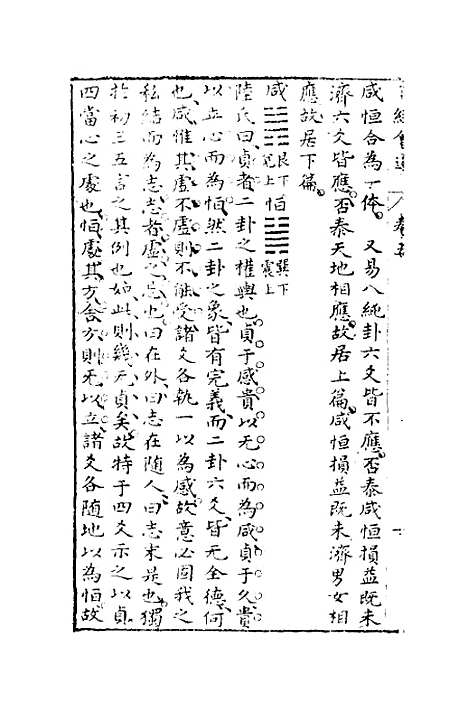 咸恒合為一体。又易八純卦六爻皆不應否泰咸恒損益既未
濟六爻皆應否泰天地相應故居上篇咸恒損益既未濟男女相
應故居下篇
咸䷞艮下兌上恒䷟巽下震上
陸氏曰貞者二卦之權輿也貞于感貴以无心而為咸貞于久貴
以立心而為恒然二卦之象皆有完義而二卦六爻皆无全德何
也咸惟其處不虛則不能受諸爻各執一以為感故意必固我之
私結而為志志者虛之忘也曰在外曰志在隨人曰志末是也獨
於初三五言之其例也如此則幾无貞矣故特于四爻示之以貞
四當心之處也恒處其方舍方則无以立諸爻各随地以為恒故